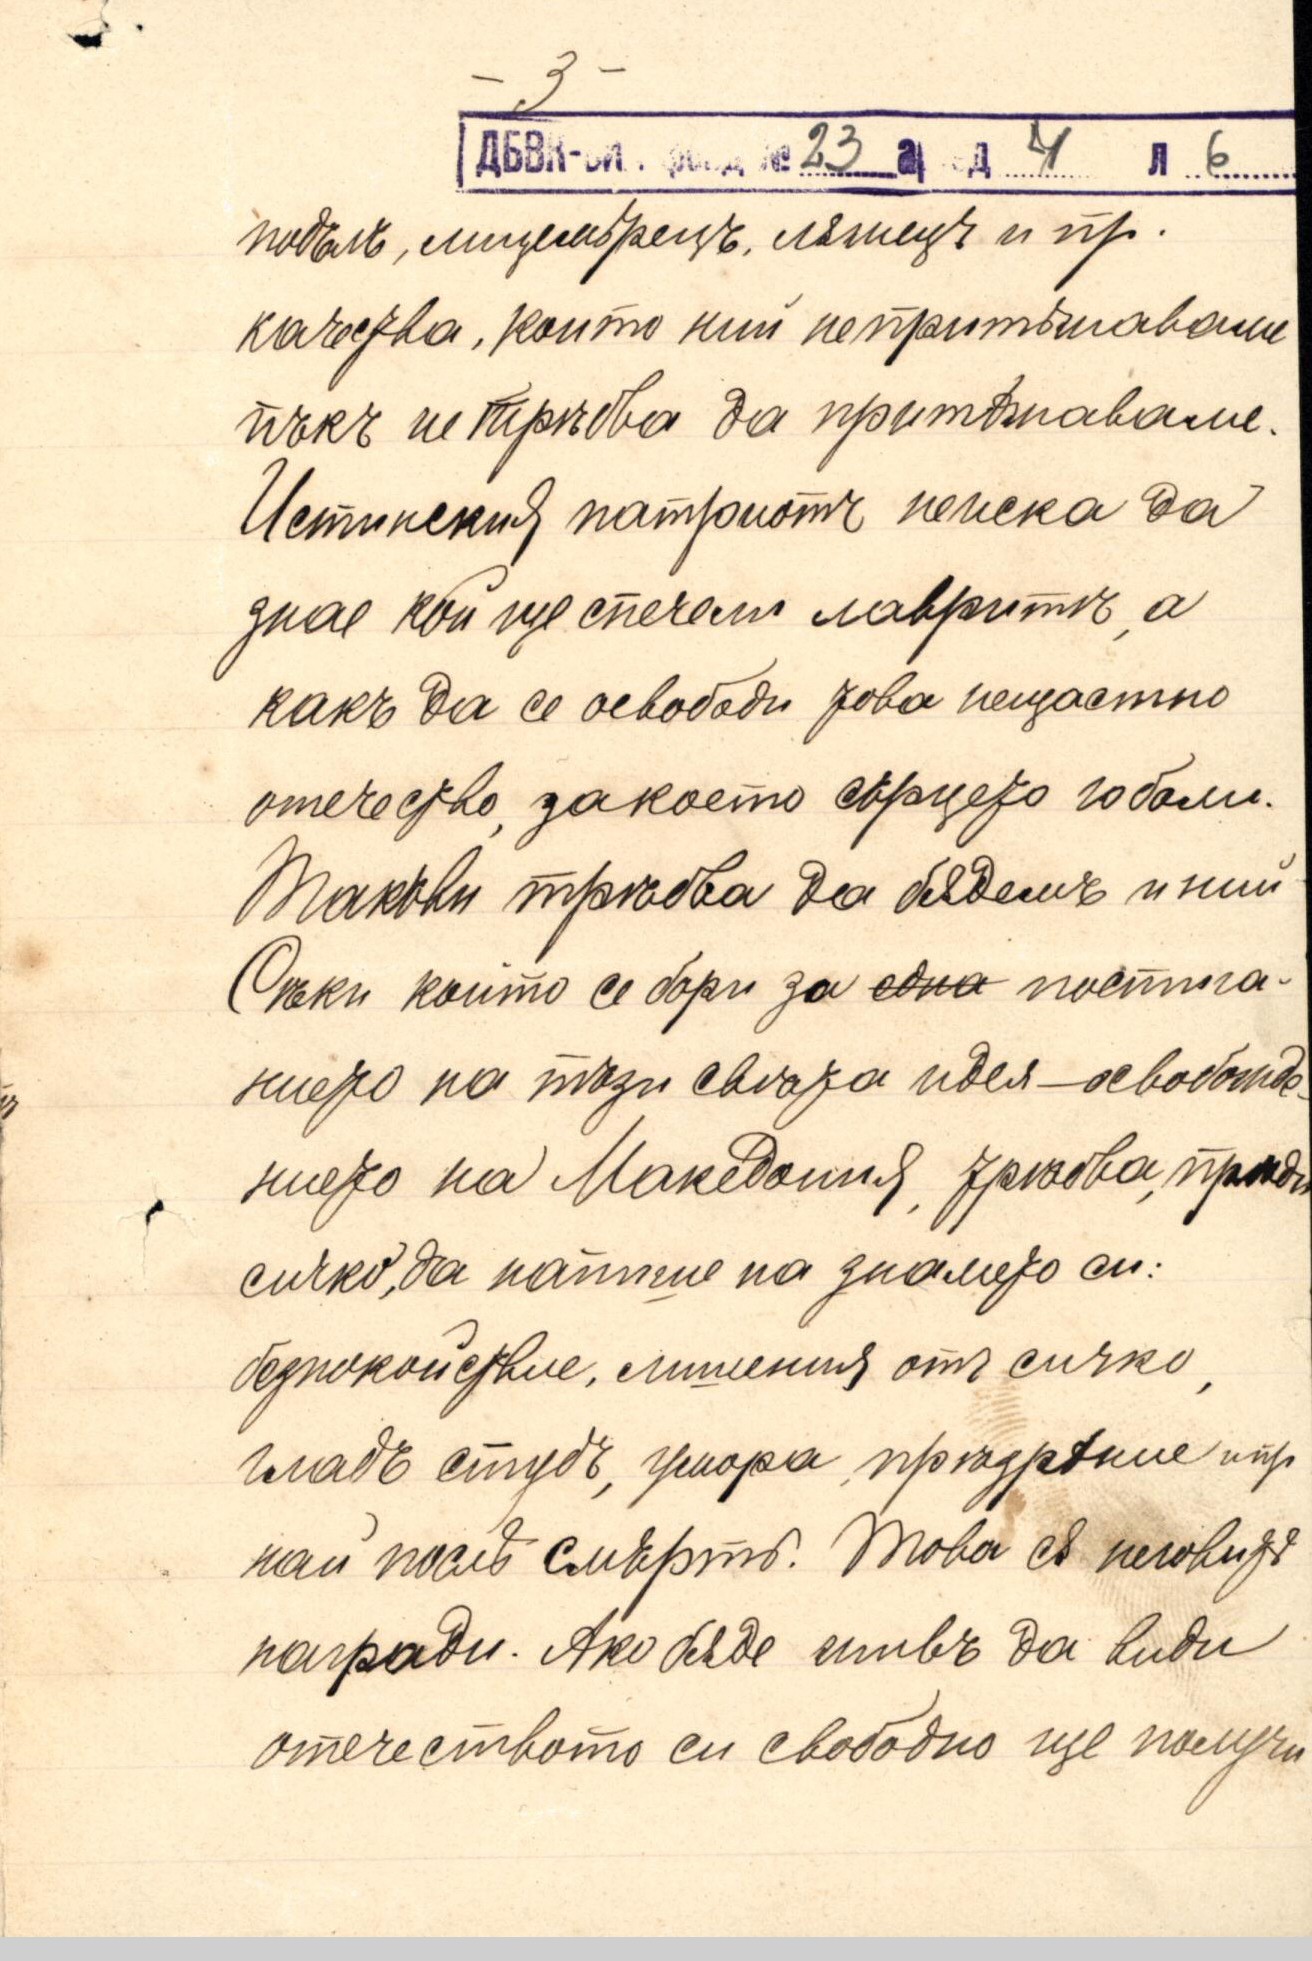 - 3 -
ДБВК-БИА фонд № 23 а| ед 41 л 6
подълъ, лицемѣрецъ, лъжецъ и пр.
качества, които ний непритѣжаваме
пъкъ нетрѣбва да притѣжаваме.
Истинския патриотъ неиска да
знае кой ще спечели лавритѣ, а
какъ да се освободи това нещастно
отечество, за което сърцето го боли.
Такъви трѣбва да бѫдемъ и ний
Сѣки който се бори за една постига-
нието на тъзи свѣта идея – освобожде-
нието на Македония, трѣбва, прѣди
сичко, да напише на знамето си:
безпокойствие, лишения отъ сичко,
гладъ студъ, умора, прѣзрѣние и пр
най послѣ смърть. Това сѫ неговитѣ
награди. Ако бѫде живъ да види
отечеството си свободно ще получи